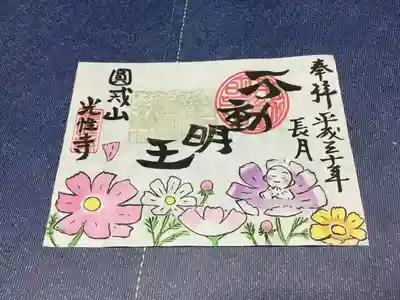 奉拝 平成三十年
長月
不動
明
王
圓戒山
光性寺